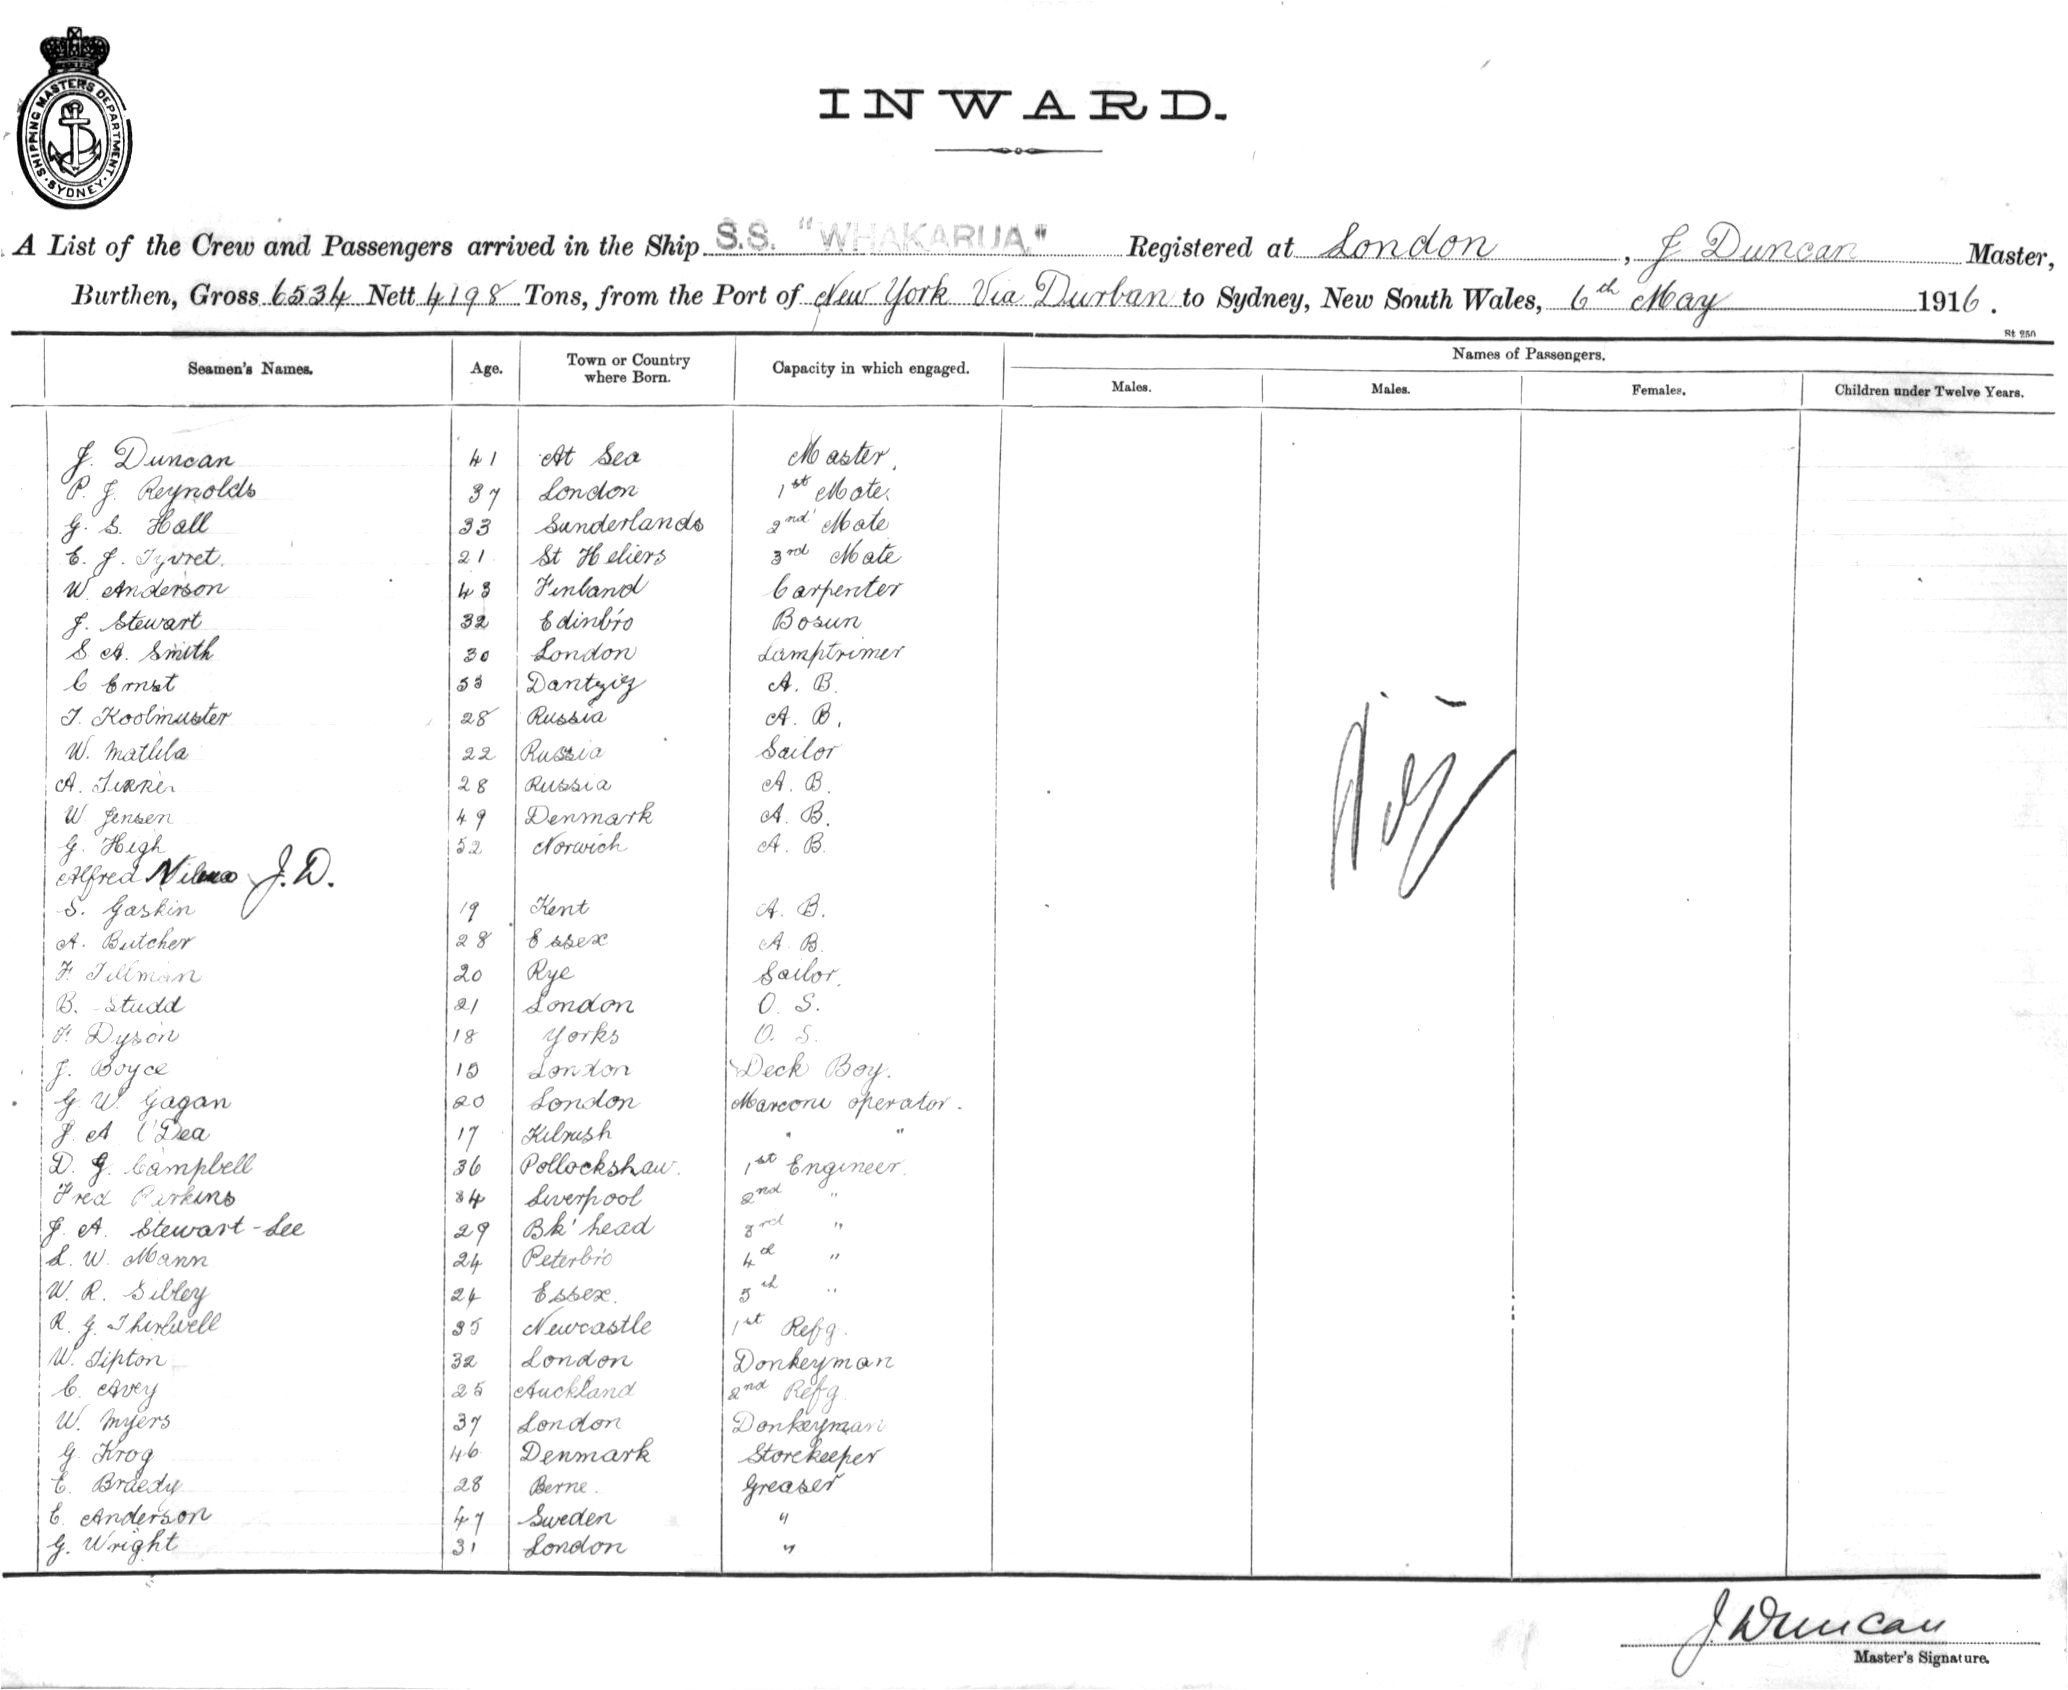 SHIPPING MASTER'S DEPARTMENT · SYDNEY ·
INWARD.
A List of the Crew and Passengers arrived in the Ship S.S. "WHAKARUA." Registered at London, J Duncan Master,
Burthen, Gross 6534 Nett 4198 Tons, from the Port of New York Via Durban to Sydney, New South Wales, 6th May 1916.
St 250
Seamen's Names. Age. Town or Country where Born. Capacity in which engaged. Names of Passengers.
Males. Males. Females. Children under Twelve Years.
J. Duncan 41 At Sea Master.
P. J. Reynolds 37 London 1st Mate.
G. S. Hall 33 Sunderlands 2nd Mate
E. J. Syvret. 21 St Heliers 3rd Mate
W. Anderson 43 Finland Carpenter
J. Stewart 32 Edinb'ro Bosun
S A. Smith 30 London Lamptrimer
C Ernst 53 Dantzig A. B.
J. Koolmuster 28 Russia A. B.
W. Matlila 22 Russia Sailor
A. 28 Russia A. B.
W. Jensen 49 Denmark A. B.
G. High 52 Norwich A. B.
Alfred J.D.
S. Gaskin 19 Kent A. B.
A. Butcher 28 Essex A. B.
F. Tillman 20 Rye Sailor.
B. Studd 21 London O. S.
F. Dyson 18 Yorks O. S.
J. Boyce 15 London Deck Boy.
G. W. Gagan 20 London Marconi operator.
J. A O'Dea 17 Kilrush " "
D. G. Campbell 36 Pollockshaw. 1st Engineer.
Fred Perkins 34 Liverpool 2nd "
J. A. Stewart-Lee 29 Bk'head 3rd "
L. W. Mann 24 Peterb'ro 4th "
W. R. Sibley 24 Essex. 5th "
R. G. Thirlwell 35 Newcastle 1st Refg.
W. Tipton 32 London Donkeyman
C. Avey 25 Auckland 2nd Refg.
W. Myers 37 London Donkeyman
G. Krog 46 Denmark Storekeeper
E. Braedy 28 Berne. Greaser
E. Anderson 47 Sweden "
G. Wright 31 London "
J Duncan
Master's Signature.